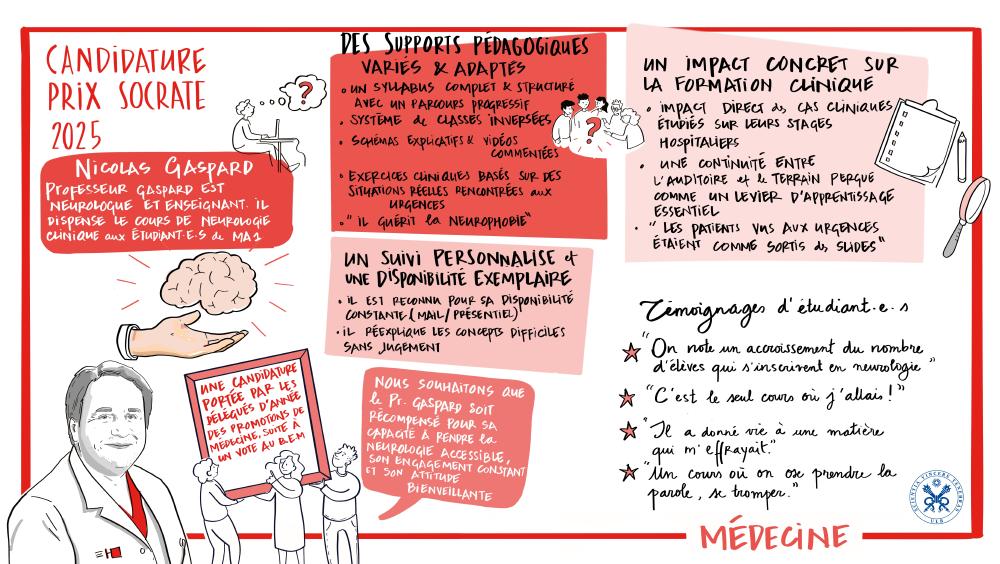 CANDIDATURE
PRIX SOCRATE
2025
?
NICOLAS GASPARD
PROFESSEUR GASPARD EST
NEUROLOGUE ET ENSEIGNANT. IL
DISPENSE LE COURS DE NEUROLOGIE
CLINIQUE aux ÉTUDIANT·E·S de MA1
UNE CANDIDATURE
PORTÉE PAR LES
DÉLÉGUÉS D'ANNÉE
DES PROMOTIONS DE
MÉDECINE, SUITE À
UN VOTE AU B.E.M
DES SUPPORTS PÉDAGOGIQUES
VARIÉS & ADAPTÉS
• UN SYLLABUS COMPLET & STRUCTURÉ
AVEC UN PARCOURS PROGRESSIF
• SYSTÈME de CLASSES INVERSÉES
• SCHÉMAS EXPLICATIFS & VIDÉOS
COMMENTÉES
• EXERCICES CLINIQUES BASÉS SUR DES
SITUATIONS RÉELLES RENCONTRÉES aux
URGENCES
• " IL GUÉRIT la NEUROPHOBIE"
?
UN SUIVI PERSONNALISÉ et
UNE DISPONIBILITÉ EXEMPLAIRE
• IL EST RECONNU POUR SA DISPONIBILITÉ
CONSTANTE (MAIL/ PRÉSENTIEL)
• IL RÉEXPLIQUE LES CONCEPTS DIFFICILES
SANS JUGEMENT
NOUS SOUHAITONS QUE
le Pr. GASPARD SOIT
RÉCOMPENSÉ POUR SA
CAPACITÉ À RENDRE la
NEUROLOGIE ACCESSIBLE,
SON ENGAGEMENT CONSTANT
ET SON ATTITUDE
BIENVEILLANTE
UN IMPACT CONCRET SUR
LA FORMATION CLINIQUE
• IMPACT DIRECT des CAS CLINIQUES
ÉTUDIÉS SUR LEURS STAGES
HOSPITALIERS
• UNE CONTINUITÉ ENTRE
L'AUDITOIRE et le TERRAIN PERÇUE
COMME UN LEVIER D'APPRENTISSAGE
ESSENTIEL
• " LES PATIENTS VUS AUX URGENCES
ÉTAIENT COMME SORTIS des SLIDES"
Témoignages d'étudiant·e·s
"On note un accroissement du nombre
d'élèves qui s'inscrivent en neurologie"
"C'est le seul cours où j'allais!"
"Il a donné vie à une matière
qui m'effrayait"
"Un cours où on ose prendre la
parole, se tromper."
SCIENTIA VINCERE TENEBRAS
ULB
MÉDECINE